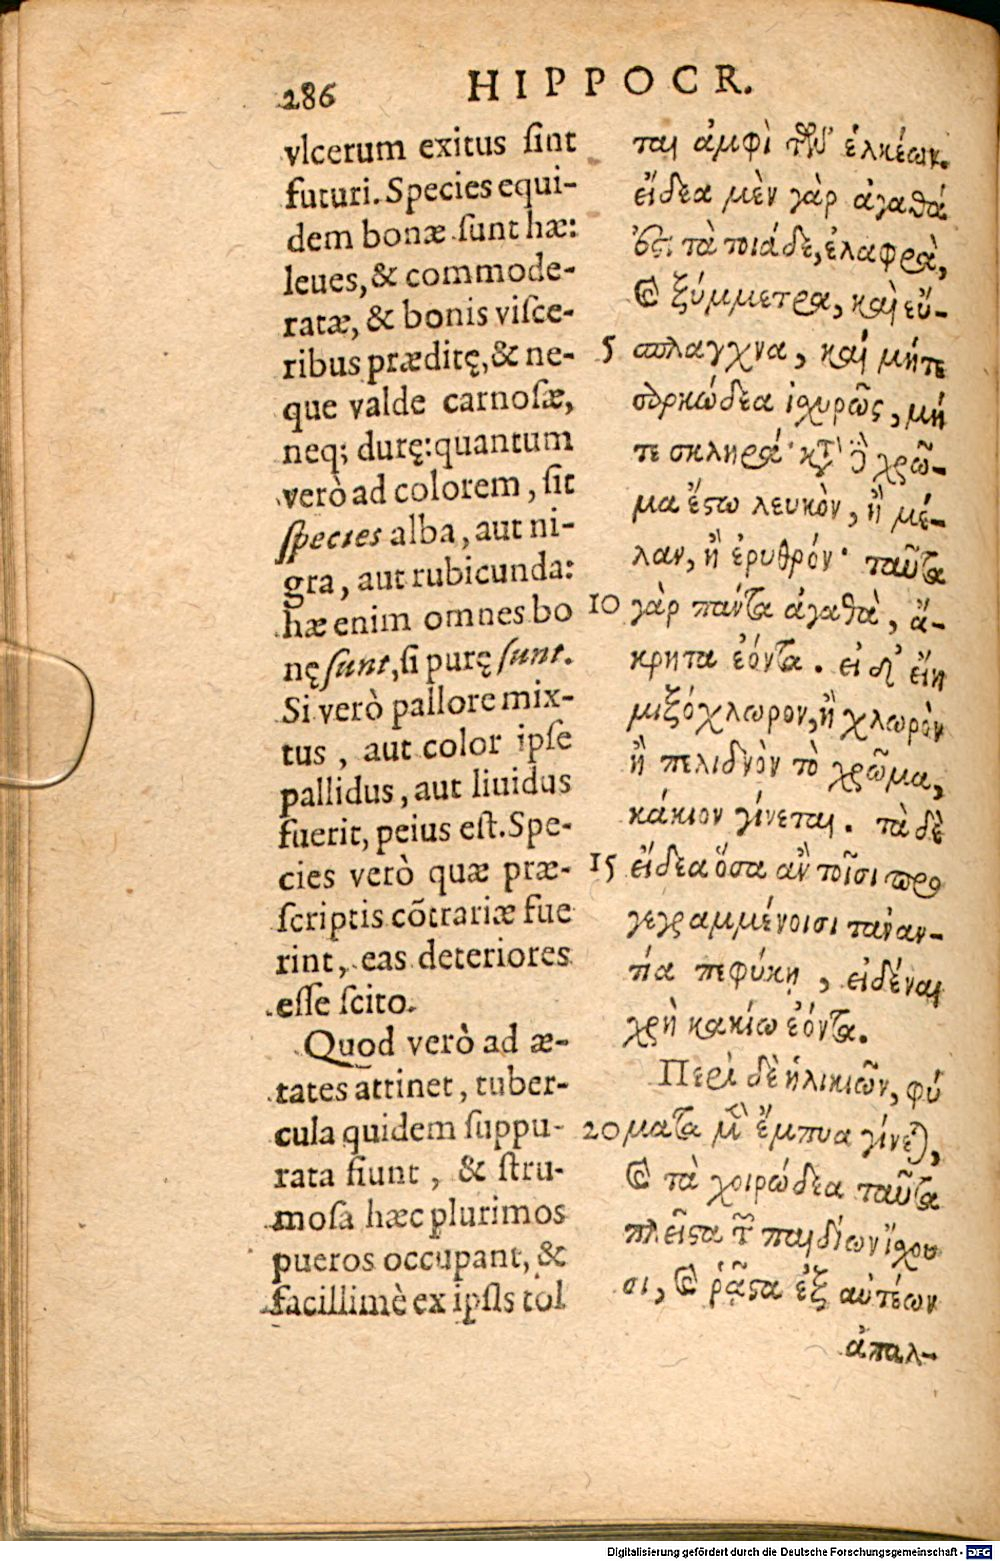 286 HIPPOCR.
vlcerum exitus ſint
futuri. Species equi-
dem bonæ ſunt hæ:
leues, & commode-
ratæ, & bonis viſce-
ribus præditę, & ne-
que valde carnoſæ,
neq; durę: quantum
verò ad colorem, ſit
ſpecies alba, aut ni-
gra, aut rubicunda:
hæ enim omnes bo
nę ſunt, ſi purę ſunt.
Si verò pallore mix-
tus, aut color ipſe
pallidus, aut liuidus
fuerit, peius eſt. Spe-
cies verò quæ præ-
ſcriptis cõtrariæ fue
rint, eas deteriores
eſſe ſcito.
Quod verò ad æ-
tates attinet, tuber-
cula quidem ſuppu-
rata fiunt, & ſtru-
moſa hæc plurimos
pueros occupant, &
facillimè ex ipſis tol
ται ἀμφὶ τῶν ἑλκέων.
εἴδεα μὲν γὰρ ἀγαθά
ἐςι τὰ τοιάδε, ἐλαφρὰ,
καὶ ξύμμετρα, καὶ εὔ-
5 σπλαγχνα, καὶ μήτε
σαρκώδεα ἰσχυρῶς, μή
τε σκληρά· κατὰ δὲ χρῶ-
μα ἔςω λευκὸν, ἢ μέ-
λαν, ἢ ἐρυθρόν· ταῦτα
10 γὰρ πάντα ἀγαθὰ, ἄ-
κρητα ἐόντα. εἰ δ' εἴη
μιξόχλωρον, ἢ χλωρὸν
ἢ πελιδνὸν τὸ χρῶμα,
κάκιον γίνεται. τὰ δὲ
15 εἴδεα ὅσα ἂν τοῖσι προ
γεγραμμένοισι τἀναν-
τία πεφύκῃ, εἰδέναι
χρὴ κακίω ἐόντα.
Περὶ δὲ ἡλικιῶν, φύ
20 ματα μὲν ἔμπυα γίνεται,
καὶ τὰ χοιρώδεα ταῦτα
πλεῖςα τῶν παιδίων ἴχου
σι, καὶ ῥᾷςα ἐξ αὐτέων
ἀπαλ-
Digitalisierung gefördert durch die Deutsche Forschungsgemeinschaft - DFG